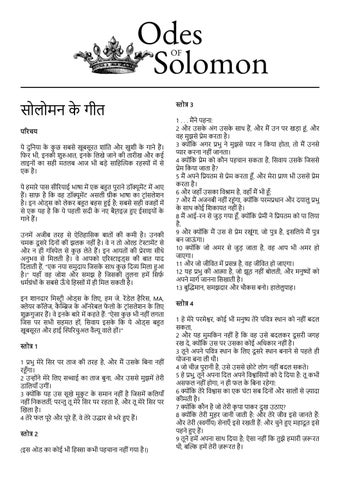 Odes
OF
Solomon
सोलोमन के गीत
परिचय
ये दुनिया के कुछ सबसे खूबसूरत शांति और खुशी के गाने हैं।
फिर भी, इनकी शुरूआत, इनके लिखे जाने की तारीख और कई
लाइनों का सही मतलब आज भी बड़े साहित्यिक रहस्यों में से
एक है।
ये हमारे पास सीरियाई भाषा में एक बहुत पुराने डॉक्यूमेंट में आए
हैं। साफ़ है कि वह डॉक्यूमेंट असली ग्रीक भाषा का ट्रांसलेशन
है। इन ओड्स को लेकर बहुत बहस हुई है; सबसे सही वजहों में
से एक यह है कि ये पहली सदी के नए बैप्टाइज़्ड हुए ईसाइयों के
गाने हैं।
उनमें अजीब तरह से ऐतिहासिक बातों की कमी है। उनकी
चमक दूसरे दिनों की झलक नहीं है। वे न तो ओल्ड टेस्टामेंट से
और न ही गॉस्पेल से कुछ लेते हैं। इन आयतों की प्रेरणा सीधे
अनुभव से मिलती है। वे आपको एरिस्टाइड्स की बात याद
दिलाती हैं, "एक नया समुदाय जिसके साथ कुछ दिव्य मिला हुआ
है।" यहाँ वह जोश और समझ है जिसकी तुलना हमें सिर्फ़
धर्मग्रंथों के सबसे ऊँचे हिस्सों में ही मिल सकती है।
इन शानदार मिस्ट्री ओड्स के लिए, हम जे. रेंडेल हैरिस, MA,
क्लेयर कॉलेज, कैम्ब्रिज के ऑनरेबल फेलो के ट्रांसलेशन के लिए
शुक्रगुज़ार हैं। वे इनके बारे में कहते हैं: "ऐसा कुछ भी नहीं लगता
जिस पर सभी सहमत हों, सिवाय इसके कि ये ओड्स बहुत
खूबसूरत और हाई स्पिरिचुअल वैल्यू वाले हैं।"
स्तोत्र 1
1 प्रभु मेरे सिर पर ताज की तरह है, और मैं उसके बिना नहीं
रहूँगा।
2 उन्होंने मेरे लिए सच्चाई का ताज बुना, और उससे मुझमें तेरी
डालियाँ उगीं।
3 क्योंकि यह उस सूखे मुकुट के समान नहीं है जिसमें कलियाँ
नहीं निकलतीं; परन्तु तू मेरे सिर पर रहता है, और तू मेरे सिर पर
खिला है।
4 तेरे फल पूरे और पूरे हैं, वे तेरे उद्धार से भरे हुए हैं।
स्तोत्र 2
(इस ओड का कोई भी हिस्सा कभी पहचाना नहीं गया है।)
स्तोत्र 3
1 . . . मैंने पहना:
2 और उसके अंग उसके साथ हैं, और मैं उन पर खड़ा हूँ, और
वह मुझसे प्रेम करता है।
3 क्योंकि अगर प्रभु ने मुझसे प्यार न किया होता, तो मैं उनसे
प्यार करना नहीं जानता।
4 क्योंकि प्रेम को कौन पहचान सकता है, सिवाय उसके जिससे
प्रेम किया जाता है?
5 मैं अपने प्रियतम से प्रेम करता हूँ, और मेरा प्राण भी उससे प्रेम
करता है।
6 और जहाँ उसका विश्राम है, वहाँ मैं भी हूँ;
7 और मैं अजनबी नहीं रहूंगा, क्योंकि परमप्रधान और दयालु प्रभु
के साथ कोई शिकायत नहीं है।
8 मैं उससे जुड़ गया हूँ, क्योंकि प्रेमी ने प्रियतम को पा लिया
है,
9 और क्योंकि मैं उस से प्रेम रखूंगा, जो पुत्र है, इसलिये मैं पुत्र
बन जाऊंगा।
10 क्योंकि जो अमर से जुड़ जाता है, वह आप भी अमर हो
जाएगा।
11 और जो जीवित में प्रसन्न है, वह जीवित हो जाएगा।
12 यह प्रभु की आत्मा है, जो झूठ नहीं बोलती, और मनुष्यों को
अपने मार्ग जानना सिखाती है।
13 बुद्धिमान, समझदार और चौकस बनो। हालेलूयाह।
स्तोत्र 4
1 हे मेरे परमेश्वर, कोई भी मनुष्य तेरे पवित्र स्थान को नहीं बदल
सकता,
2 और यह मुमकिन नहीं है कि वह उसे बदलकर दूसरी जगह
रख दे, क्योंकि उस पर उसका कोई अधिकार नहीं है।
3 तूने अपने पवित्र स्थान के लिए दूसरे स्थान बनाने से पहले ही
योजना बना ली थी।
4 जो चीज़ पुरानी है, उसे उससे छोटे लोग नहीं बदल सकते।
5 हे प्रभु, तूने अपना दिल अपने विश्वासियों को दे दिया है: तू कभी
असफल नहीं होगा, न ही फल के बिना रहेगा:
6 क्योंकि तेरे विश्वास का एक घंटा सब दिनों और सालों से ज़्यादा
कीमती है।
7 क्योंकि कौन है जो तेरी कृपा पाकर दुख उठाए?
8 क्योंकि तेरी मुहर जानी जाती है: और तेरे जीव इसे जानते हैं:
और तेरी (स्वर्गीय) सेनाएँ इसे रखती हैं: और चुने हुए महादूत इसे
पहने हुए हैं।
9 तूने हमें अपना साथ दिया है: ऐसा नहीं कि तुझे हमारी ज़रूरत
थी; बल्कि हमें तेरी ज़रूरत है।